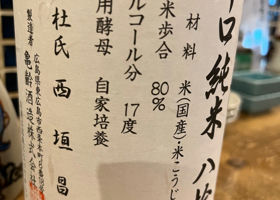 口 純米 八
材料 米(国産)・米こうじ
米歩合 80%
ルコール分 17度
用酵母 自家培養
杜氏 西垣昌
製造者 広島県東広島市西条本町
亀齢酒造株式会社